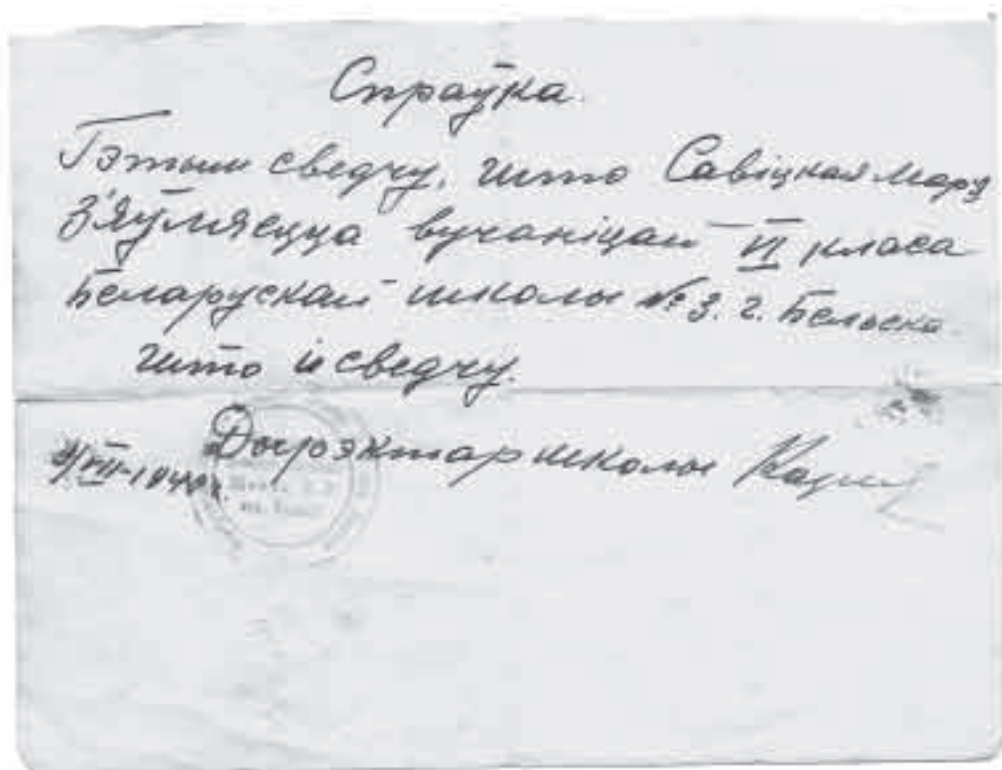 Спраўка.
Гэтым сведчу, што Савіцкая Марэ
з'яўляецца вучаніцай VI класа
Беларускай школы № 3. г. Бельска
што и сведчу.
Дырэктар школы